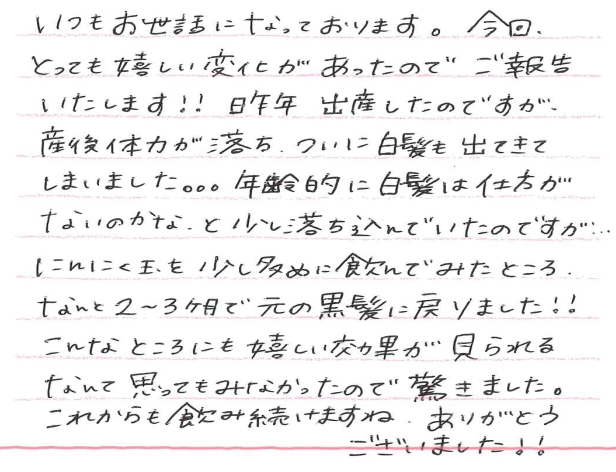 いつもお世話になっております。今回、
とっても嬉しい変化があったのでご報告
いたします!! 昨年 出産したのですが、
産後体力が落ち、ついに白髪も出てきて
しまいました。。。年齢的に白髪は仕方が
ないのかな、と少し落ち込んでいたのですが…
にんにく玉を少し多めに飲んでみたところ、
なんと2〜3ヶ月で元の黒髪に戻りました!!
こんなところにも嬉しい効果が見られる
なんて思ってもみなかったので驚きました。
これからも飲み続けますね。ありがとう
ございました!!